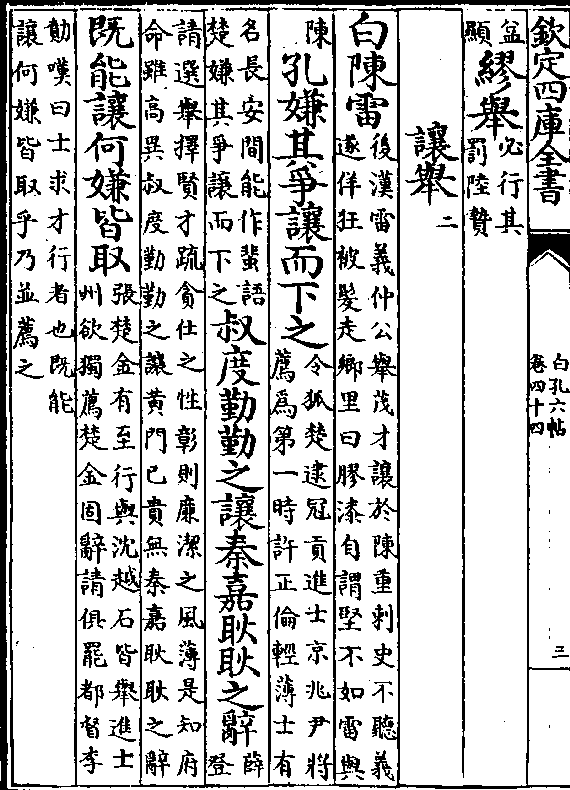 欽定四庫全書
白孔六帖
卷四十四
三
盆
顯繆舉必行其
罰陸贄
讓舉二
白陳雷後漢雷義仲公舉茂才讓於陳重刺史不聽義
遂佯狂被髮走鄉里曰膠漆自謂堅不如雷與
陳孔嫌其爭讓而下之令狐楚逮冠貢進士京兆尹將
薦爲第一時許正倫輕薄士有
名長安間能作蜚語
楚嫌其爭讓而下之叔度勤勤之讓秦嘉耿耿之辭薛
登
請選舉擇賢才疏貪仕之性彰則廉潔之風薄是知府
命雖高異叔度勤勤之讓黃門已貴無秦嘉耿耿之辭
既能讓何嫌皆取張楚金有至行與沈越石皆舉進士
州欲獨薦楚金固辭請俱罷都督李
勣嘆曰士求才行者也既能
讓何嫌皆取乎乃並薦之